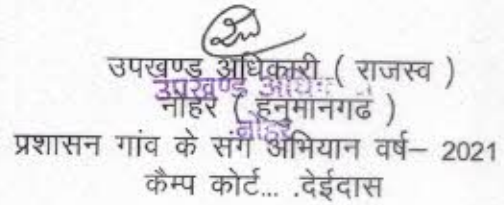 उपखण्ड अधिकारी ( राजस्व )
उपखण्ड अधि
नोहर ( हनुमानगढ )
नोहर
प्रशासन गांव के संग अभियान वर्ष– 2021
कैम्प कोर्ट... .देईदास